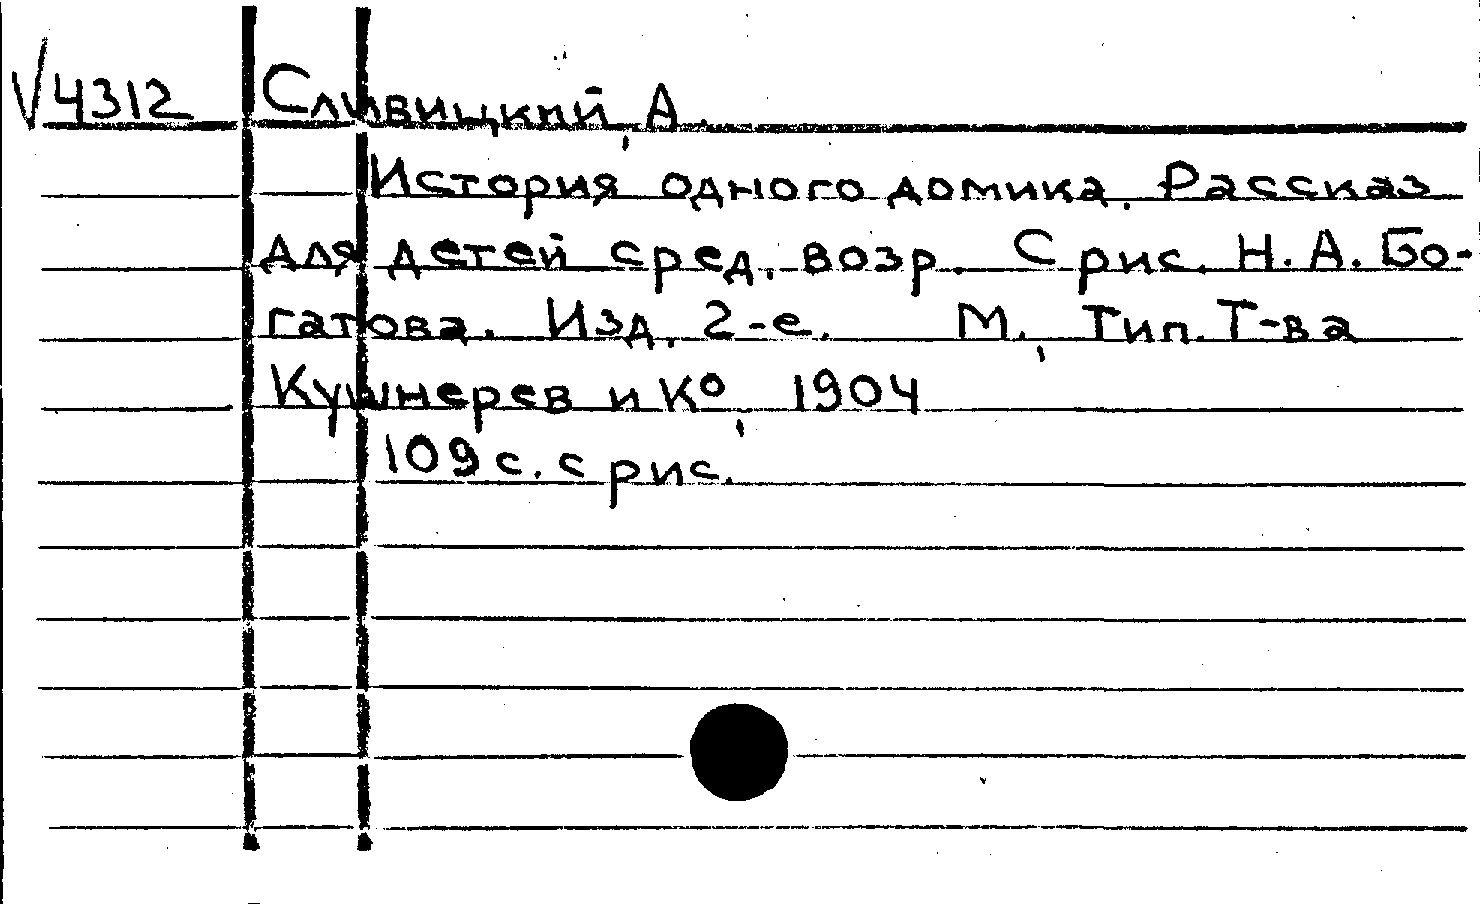 √4312 Сливицкий, А.
История одного домика. Рассказ
для детей сред. возр. С рис. Н.А. Бо-
гатова. Изд. 2-е. М., Тип. Т-ва
Кушнерев и К°, 1904
109 с. с рис.